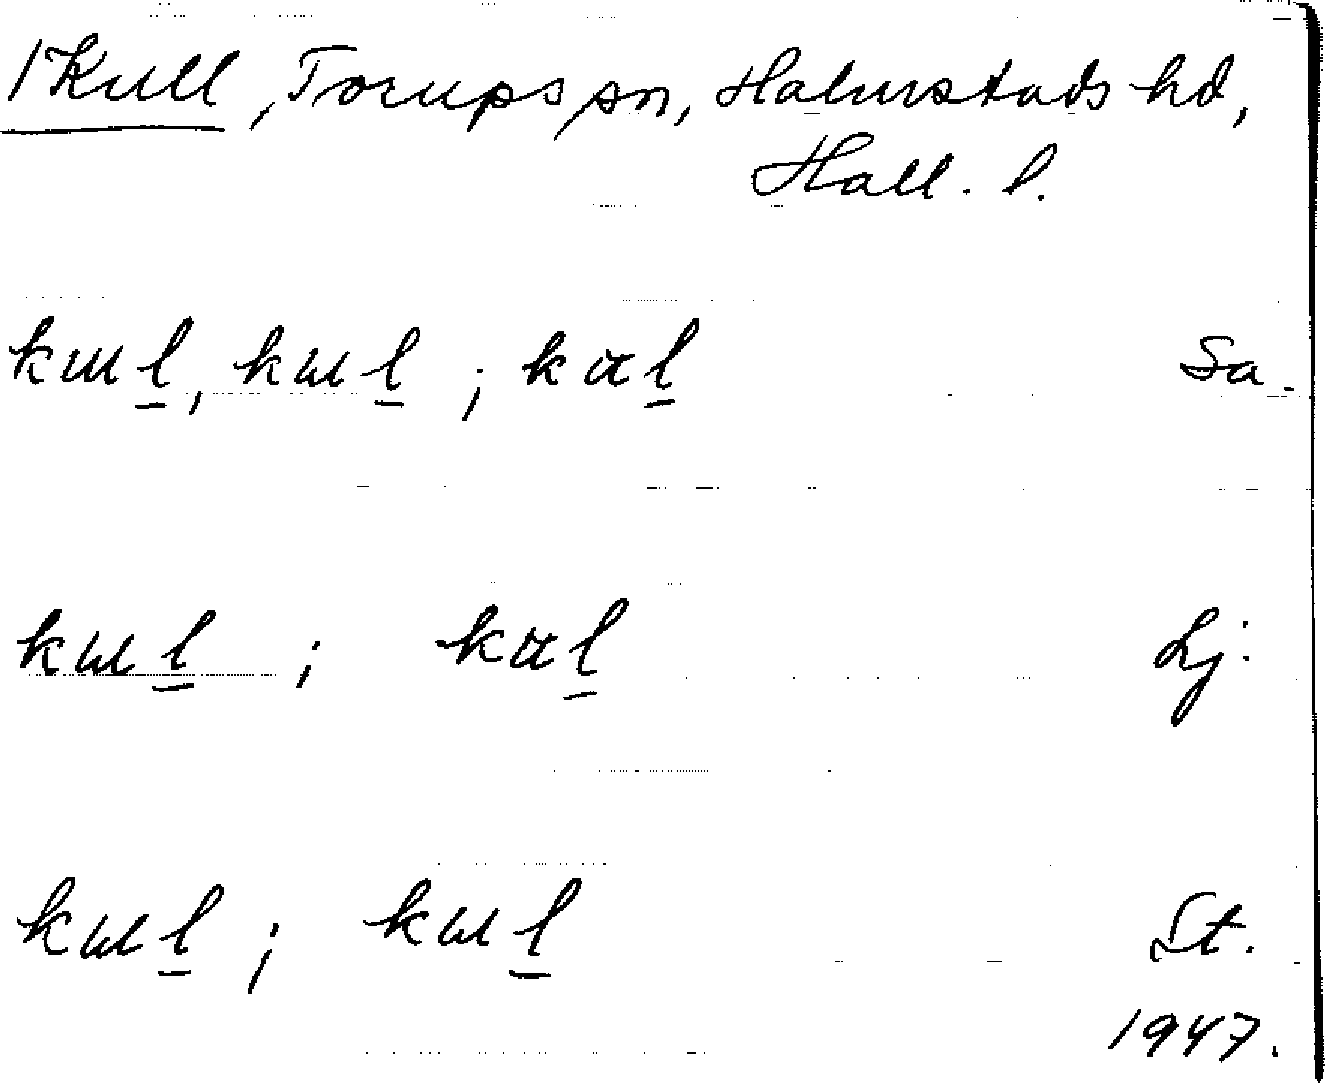 1 Kull, Torups sn, Halmstads hd,
Hall. l.
kɯl̲, kɯl̲; kαl̲ Sa.
kɯl̲; kαl̲ Lj.
kɯl̲; kɯl̲ St.
1947.